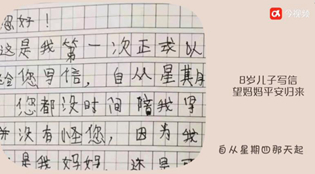 您好！
这是我第一次正式以
给您写信，自从星期
您都没时间陪我写
并没有怪您，因为我
是我妈妈，还是
8岁儿子写信
望妈妈平安归来
自从星期四那天起